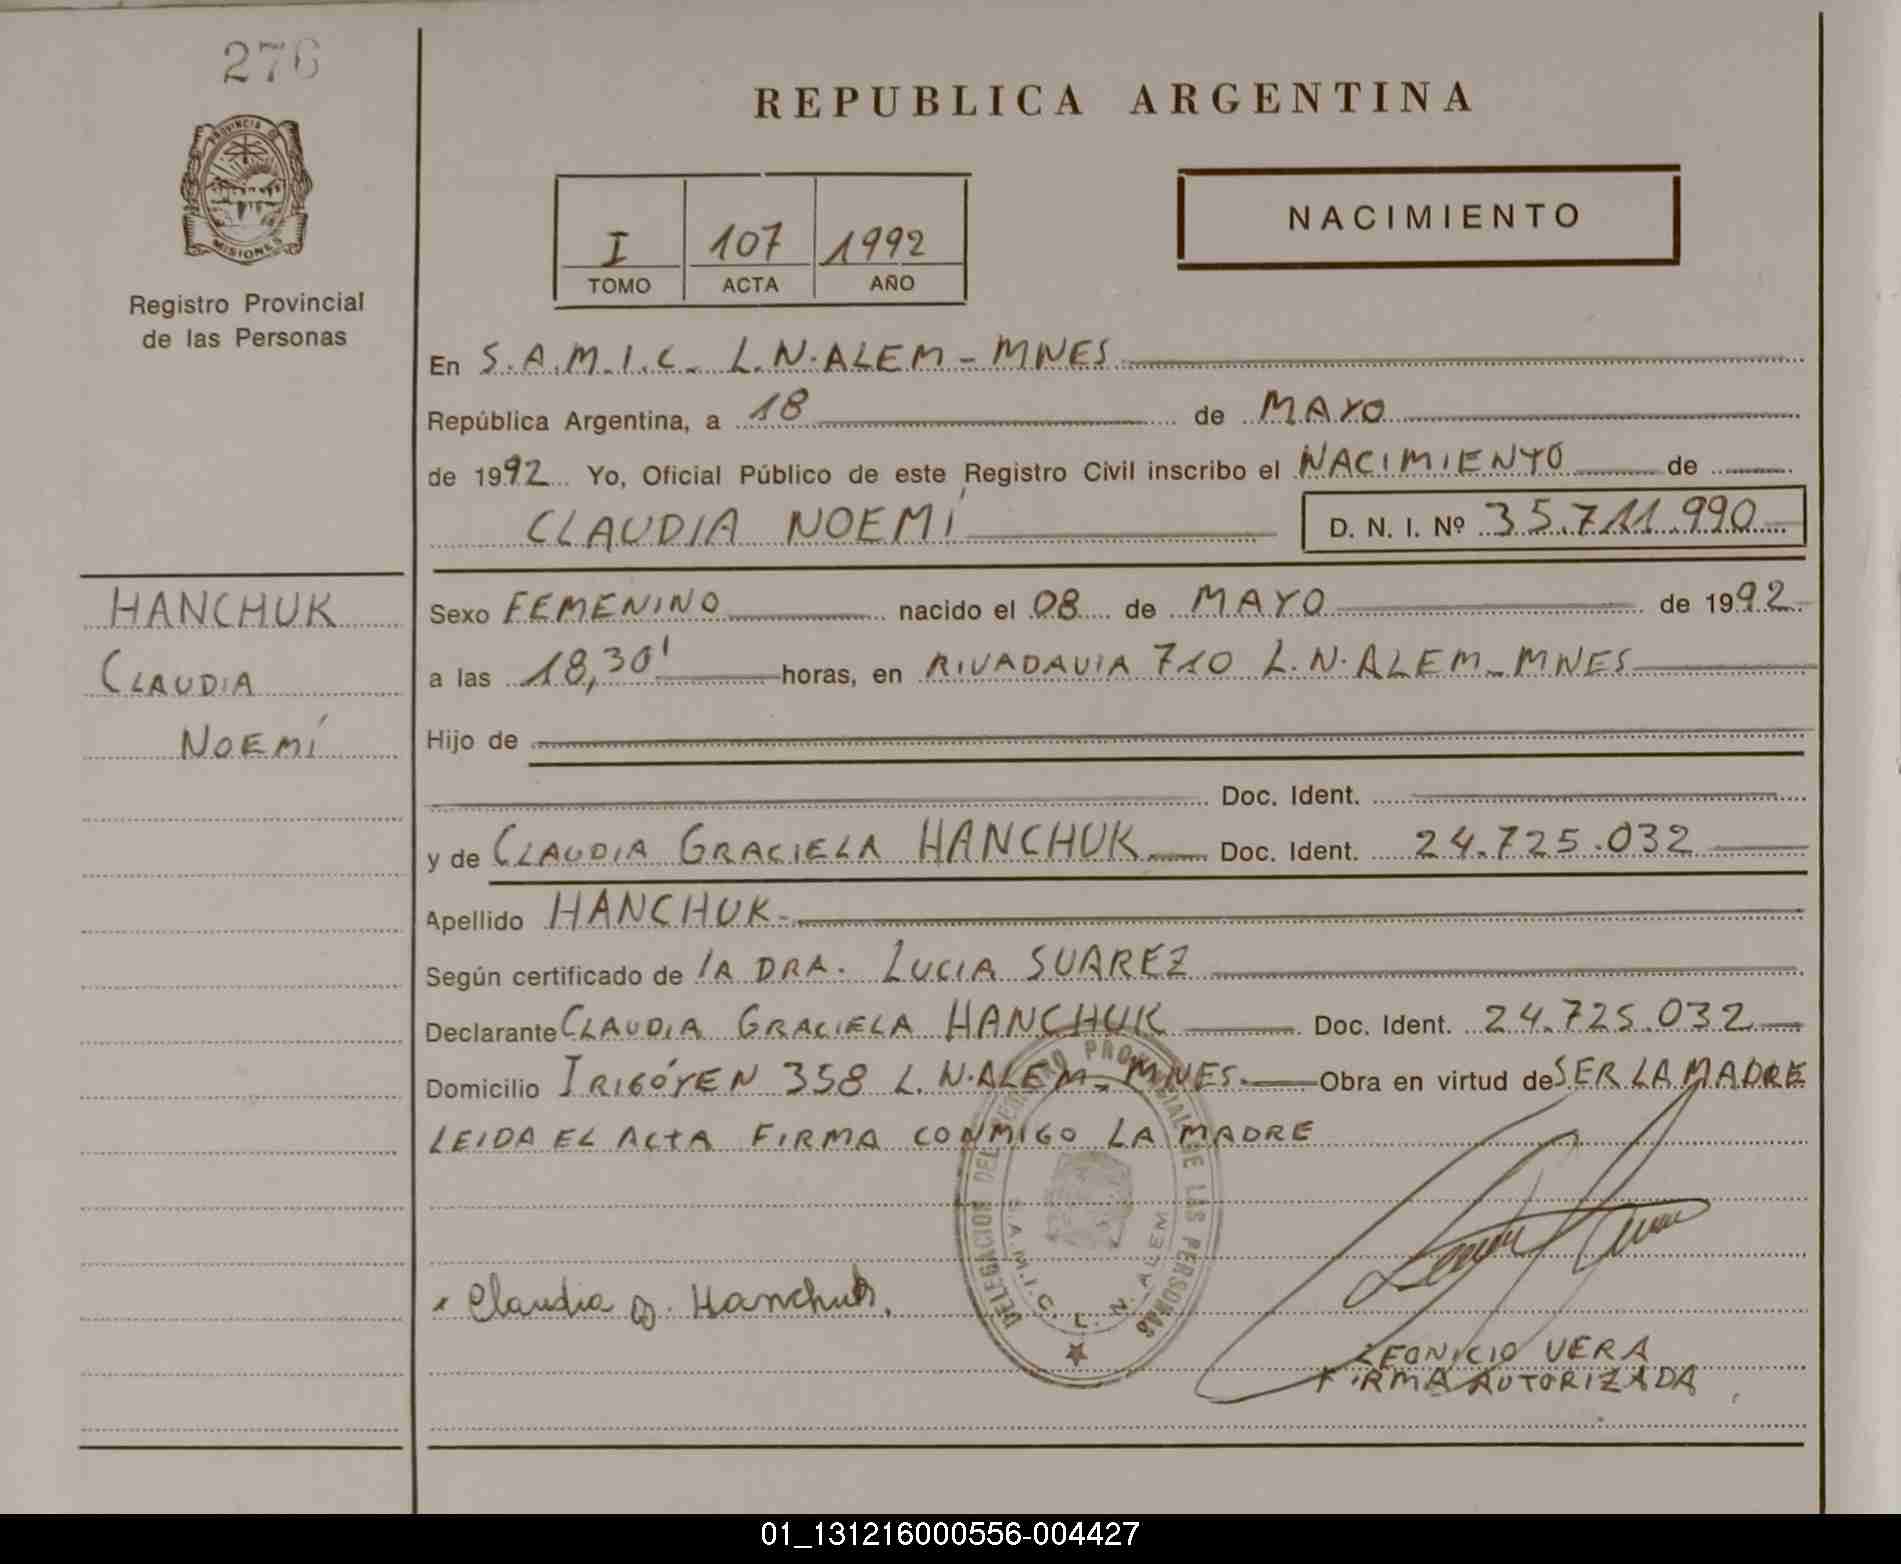 276
PROVINCIA DE
MISIONES
Registro Provincial
de las Personas
HANCHUK
CLAUDIA
NOEMÍ
REPUBLICA ARGENTINA
I 107 1992
TOMO ACTA AÑO
NACIMIENTO
En S.A.M.I.C. L.N.ALEM - MNES
República Argentina, a 18 de MAYO
de 1992 Yo, Oficial Público de este Registro Civil inscribo el NACIMIENTO de
CLAUDIA NOEMÍ D. N. I. Nº 35.711.990
Sexo FEMENINO nacido el 08 de MAYO de 1992
a las 18,30' horas, en RIVADAVIA 710 L.N.ALEM-MNES
Hijo de
Doc. Ident.
y de CLAUDIA GRACIELA HANCHUK Doc. Ident. 24.725.032
Apellido HANCHUK
Según certificado de LA DRA. LUCIA SUAREZ
Declarante CLAUDIA GRACIELA HANCHUK Doc. Ident. 24.725.032
Domicilio IRIGÓYEN 358 L.N.ALEM-MNES. Obra en virtud de SER LA MADRE
LEIDA EL ACTA FIRMA CONMIGO LA MADRE
DELEGACION DEL REGISTRO PROVINCIAL DE LAS PERSONAS
S.A.M.I.C. L.N. ALEM
Claudia G. Hanchuk.
LEONICIO VERA
FIRMA AUTORIZADA
01_131216000556-004427